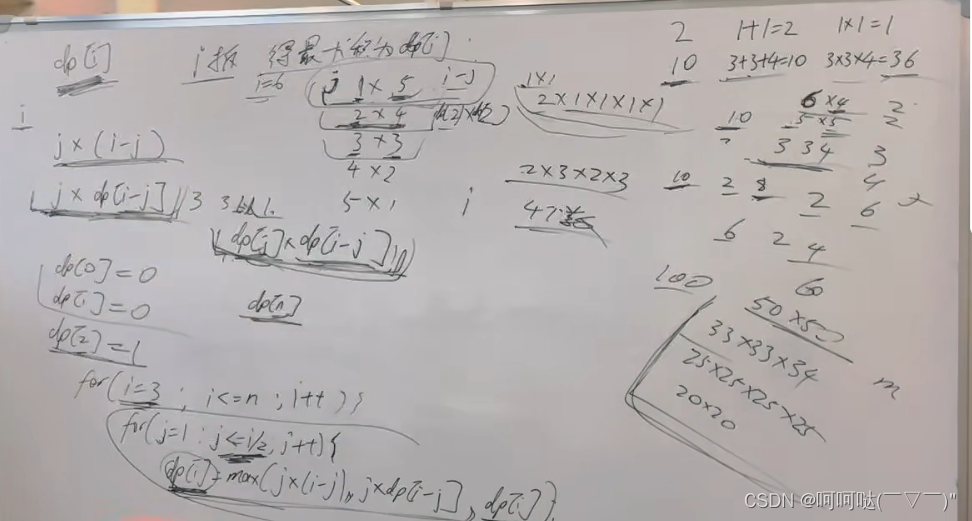 dp[i]
i拆 得最大积为dp[i].
i=6
j 1×5 i-j
2×4
3×3
4×2
5×1
i
j×(i-j)
j×dp[i-j]
3
dp[j]×dp[i-j]
dp[0]=0
dp[1]=0
dp[2]=1
dp[n]
for(i=3 ; i<=n ; i++){
for(j=1 ; j<=i/2, j++){
dp[i]=max(j×(i-j), j×dp[i-j], dp[i]).
1×1
2×1×1×1×1
2×3×2×3
i
2 1+1=2 1×1=1
10 3+3+4=10 3×3×4=36
6×4 2
10 5×5 2
3 3 4 3
4
10 2 8 2 6
6 2 4
6
100
50×50
33×33×34
25×25×25×25
20×20
m
CSDN @呵呵哒(￣▽￣)"